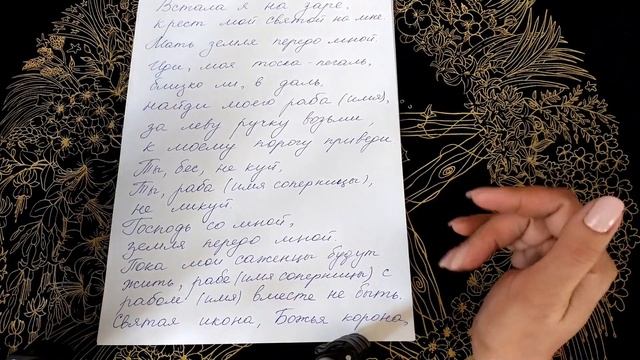 Встала я на заре,
крест мой святой на мне.
Мать земля передо мной.
Иди, моя тоска-печаль,
близко ли, в даль,
найди моего раба (имя),
за леву ручку возьми,
к моему порогу приведи
Ты, бес, не куй,
Ты, раба (имя соперницы),
не ликуй.
Господь со мной,
земля передо мной.
Пока мои саженцы будут
жить, рабе (имя соперницы) с
рабом (имя) вместе не быть.
Святая икона, Божья корона,